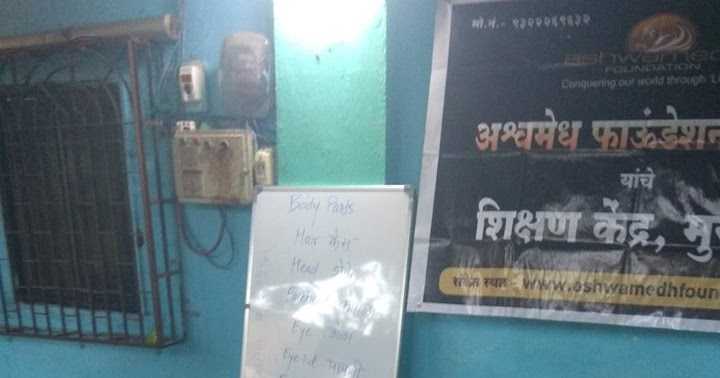 मो.नं.- ९३२२२६९६३२
ashwamed
FOUNDATION
Conquering our world through
अश्वमेध फाऊंडेशन
यांचे
शिक्षण केंद्र, मु
संकेत स्थळ - www.ashwamedhfoun
Body Parts
Hair केस
Head डोके
Eye डोळा
Eye lid पापणी